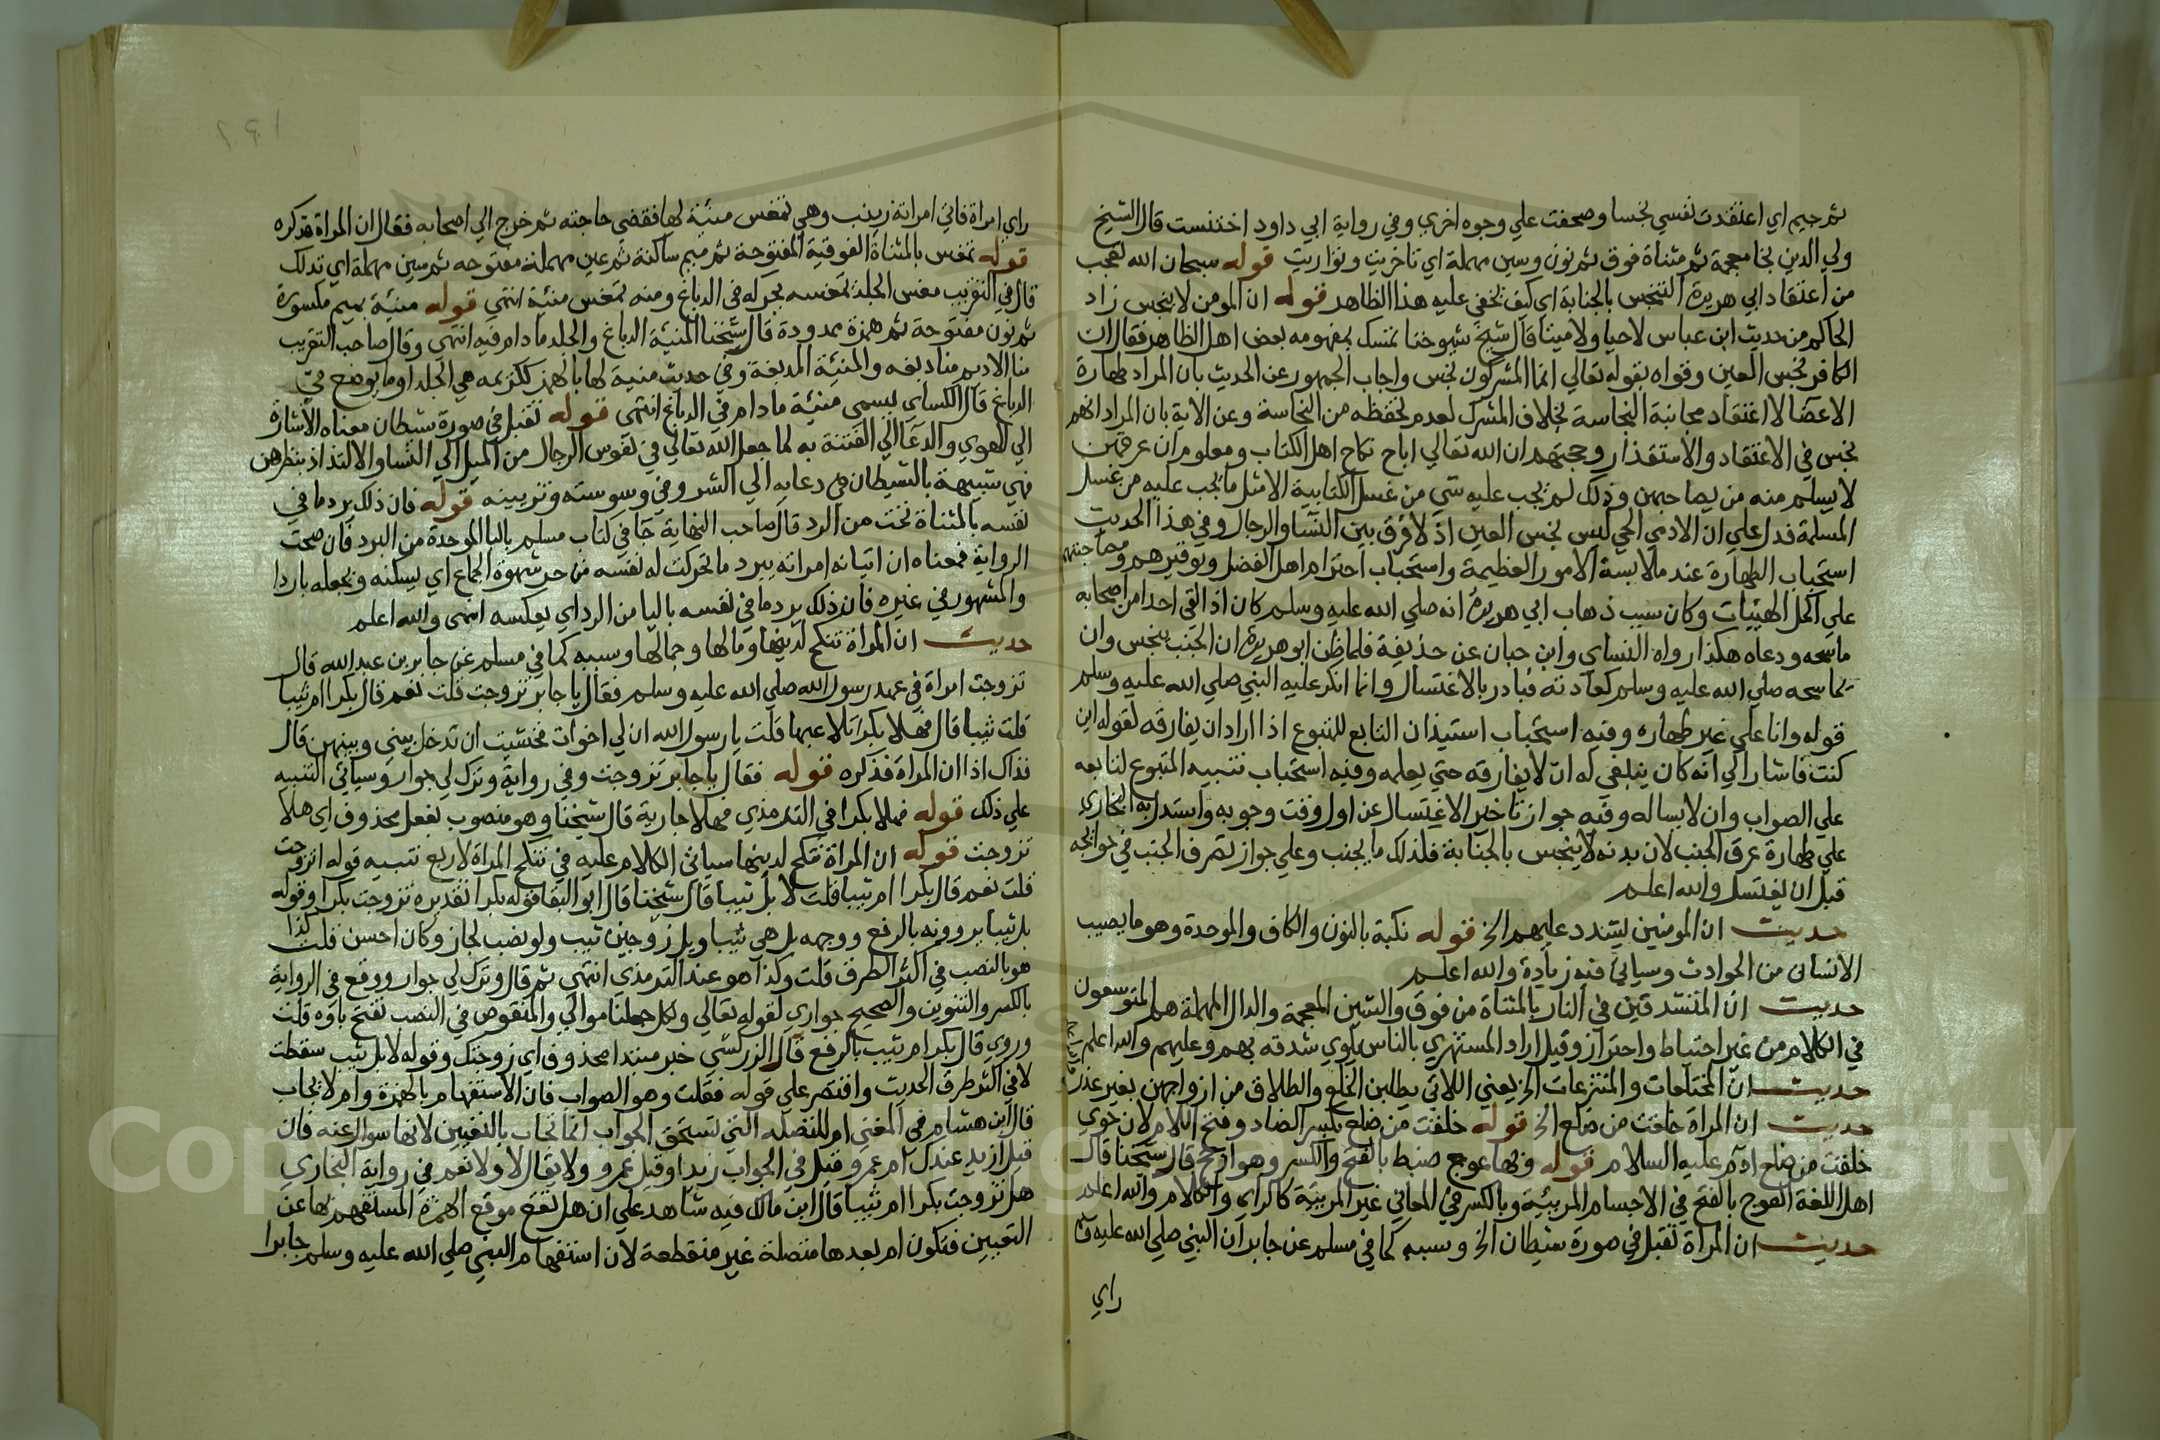 ثم جيم اي اعتقدت نفسي نجسا وصحفت علي وجوه اخري وفي رواية ابي داود اختنست قال الشيخ
ولي الدين بخا معجمة ثم مثناة فوق ثم نون وسين مهملة اي تاخرت وتواريت قوله سبحان الله تعجب
من اعتقاد ابي هريرة التنجس بالجنابة اي كيف يخفي عليه هذا الظاهر قوله ان المومن لا ينجس زاد
الحاكم من حديث ابن عباس لاحيا ولا ميتا قال شيخ شيوخنا تمسك بمفهومه بعض اهل الظاهر فقال ان
الكافر نجس العين وقواه بقوله تعالي انما المشركون نجس واجاب الجمهور عن الحديث بان المراد طهارة
الاعضا لاعتقاد مجانبة النجاسة بخلاف المشرك لعدم تحفظه من النجاسة وعن الاية بان المراد انهم
نجس في الاعتقاد والاستقذار وحجتهم ان الله تعالي اباح نكاح اهل الكتاب ومعلوم ان عرقهن
لا يسلم منه من يضاجعهن وذلك لم يجب عليه شي من غسل الكتابية الا مثل ما يجب عليه من غسل
المسلمة فدل علي ان الادمي الحي ليس نجس العين اذ لا فرق بين النسا والرجال وفي هذا الحديث
استحباب الطهارة عند ملابسة الامور العظيمة واستحباب احترام اهل الفضل وتوقيرهم ومصاحبتهم
علي اكمل الهيئات وكان سبب ذهاب ابي هريرة انه صلي الله عليه وسلم كان اذا لقي احدا من اصحابه
ماسحه ودعاه هكذا رواه النساي وابن حبان عن حذيفة فلما ظن ابو هريرة ان الجنب ينجس وان
يماسحه صلي الله عليه وسلم كعادته فبادر بالاغتسال وانما انكر عليه النبي صلي الله عليه وسلم
قوله وانا علي غير طهارة وفيه استحباب استيذان التابع للمتبوع اذا اراد ان يفارقه لقوله اين
كنت فاشار الي انه كان ينبغي له ان لا يفارقه حتي يعلمه وفيه استحباب تنبيه المتبوع لتابعه
علي الصواب وان لا يساله وفيه جواز تاخير الاغتسال عن اول وقت وجوبه واستدل به البخاري
علي طهارة عرق الجنب لان بدنه لا ينجس بالجنابة فلذلك ما يجنب وعلي جواز تصرف الجنب في حوايجه
قبل ان يغتسل والله اعلم
حديث ان المومنين يشدد عليهم الخ قوله نكبة بالنون والكاف والموحدة وهو ما يصيب
الانسان من الحوادث وسياتي فيه زيادة والله اعلم
حديث ان المتشدقين في النار بالمثناة من فوق والشين المعجمة والدال المهملة هم المتوسعون
في الكلام من غير احتياط واحتراز وقيل اراد المستهزي بالناس يلوي شدقه بهم وعليهم والله اعلم
حديث ان المختلعات والمنتزعات الخ يعني اللاتي يطلبن الخلع والطلاق من ازواجهن بغير عذر
حديث ان المراة خلقت من ضلع الخ قوله خلقت من ضلع بكسر الضاد وفتح اللام لان حوي
خلقت من ضلع ادم عليه السلام قوله وبها عوج ضبط بالفتح والكسر وهو ارجح قال شيخنا قال
اهل اللغة العوج بالفتح في الاجسام المرييه وبالكسر في المعاني غير المريية كالراي والكلام والله اعلم
حديث ان المراة تقبل في صورة شيطان الخ وسببه كما في مسلم عن جابر ان النبي صلي الله عليه وسلم
راي
راي امراة فاتي امراته زينب وهي تمعس منيئة لها فقضي حاجته ثم خرج الي اصحابه فقال ان المراة فذكره
قوله تمعس بالمثناة الفوقية المفتوحة ثم ميم ساكنة ثم عين مهملة مفتوحه ثم سين مهملة اي تدلك
قال في التقريب معس الجلد تمعسه بحركه في الدباغ ومنه تمعس منيئة انتهي قوله منيئة بميم مكسورة
ثم نون مفتوحة ثم همزة ممدودة قال شيخنا المنيئة الدباغ والجلد ما دام فيه انتهي وقال صاحب التقريب
منا الاديم منا دبغه والمنيئة المدبغة وفي حديث منية لها بالهمز ككريمه هي الجلد او ما يوضع في
الدباغ قال الكساي يسمي منيئة ما دام في الدباغ انتهي قوله تقبل في صورة شيطان معناه الاشارة
الي الهوي والدعا الي الفتنة به لما جعل الله تعالي في نفوس الرجال من الميل الي النسا والالتذاذ بنظرهن
فهي شبيهة بالشيطان في دعايه الي الشر وفي وسوسته وتزيينه قوله فان ذلك يرد ما في
نفسه بالمثناة تحت من الرد قال صاحب النهاية جا في كتاب مسلم بالبا الموحدة من البرد فان صحت
الرواية فمعناه ان اتيانه امراته يبرد ما تحركت له نفسه من حر شهوة الجماع اي يسكنه ويجعله باردا
والمشهور في غيره فان ذلك يرد ما في نفسه باليا من الرد اي يعكسه انتهي والله اعلم
حديث ان المراة تنكح لدينها ومالها وجمالها وسببه كما في مسلم عن جابر بن عبد الله قال
تزوجت امراة في عهد رسول الله صلي الله عليه وسلم فقال يا جابر تزوجت قلت نعم قال بكرا ام ثيبا
قلت ثيبا قال فهلا بكرا تلاعبها قلت يا رسول الله ان لي اخوات فخشيت ان تدخل بيني وبينهن قال
فذاك اذا ان المراة فذكره قوله فقال يا جابر تزوجت وفي رواية وترك لي جوار وسياتي التنبيه
علي ذلك قوله فهلا بكرا في الترمذي فهلا جارية قال شيخنا وهو منصوب بفعل محذوف اي هلا
تزوجت قوله ان المراة تنكح لدينها سياتي الكلام عليه في تنكح المراة لاربع تنبيه قوله اتزوجت
قلت نعم قال بكرا ام ثيبا قلت لا بل ثيبا قال شيخنا قال ابو البقا قوله بكرا تقديره تزوجت بكرا وقوله
بل ثيبا يروونه بالرفع ووجهه بل هي ثيبا وبل زوجتي ثيب ولو نصب لجاز وكان احسن قلت كذا
هو بالنصب في اكثر الطرق قلت وكذا هو عند الترمذي انتهي ثم قال وترك لي جوار ووقع في الرواية
بالكسر والتنوين والصحيح جواري لقوله تعالي ولكل جعلنا موالي والمنقوص في النصب تفتح ياؤه قلت
وروي قال بكر ام ثيب بالرفع قال الزركشي خبر مبتدا محذوف اي زوجتك وقوله لا بل ثيب سقطت
لا في اكثر طرق الحديث واقتصر علي قوله فقلت وهو الصواب فان الاستفهام بالهمزة وام لا يجاب
قال ابن هشام في المغني ام المتصله التي تستحق الجواب انما تجاب بالتعيين لانها سوال عنه فان
قيل ازيد عندك ام عمرو قيل في الجواب زيد او قيل عمرو ولا يقال لا ولا نعم في رواية البخاري
هل تزوجت بكرا ام ثيبا قال ابن مالك فيه شاهد علي ان هل تقع موقع الهمزة المستفهم بها عن
التعيين فتكون ام بعدها متصلة غير منقطعة لان استفهام النبي صلي الله عليه وسلم جابرا